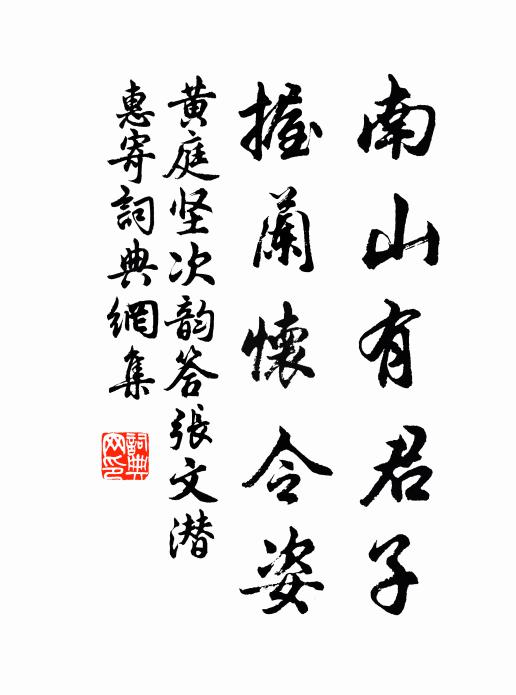 南山有君子
握蘭懷令姿
黄庭坚次韵答張文潜
惠寄詞典網集
詞典网印